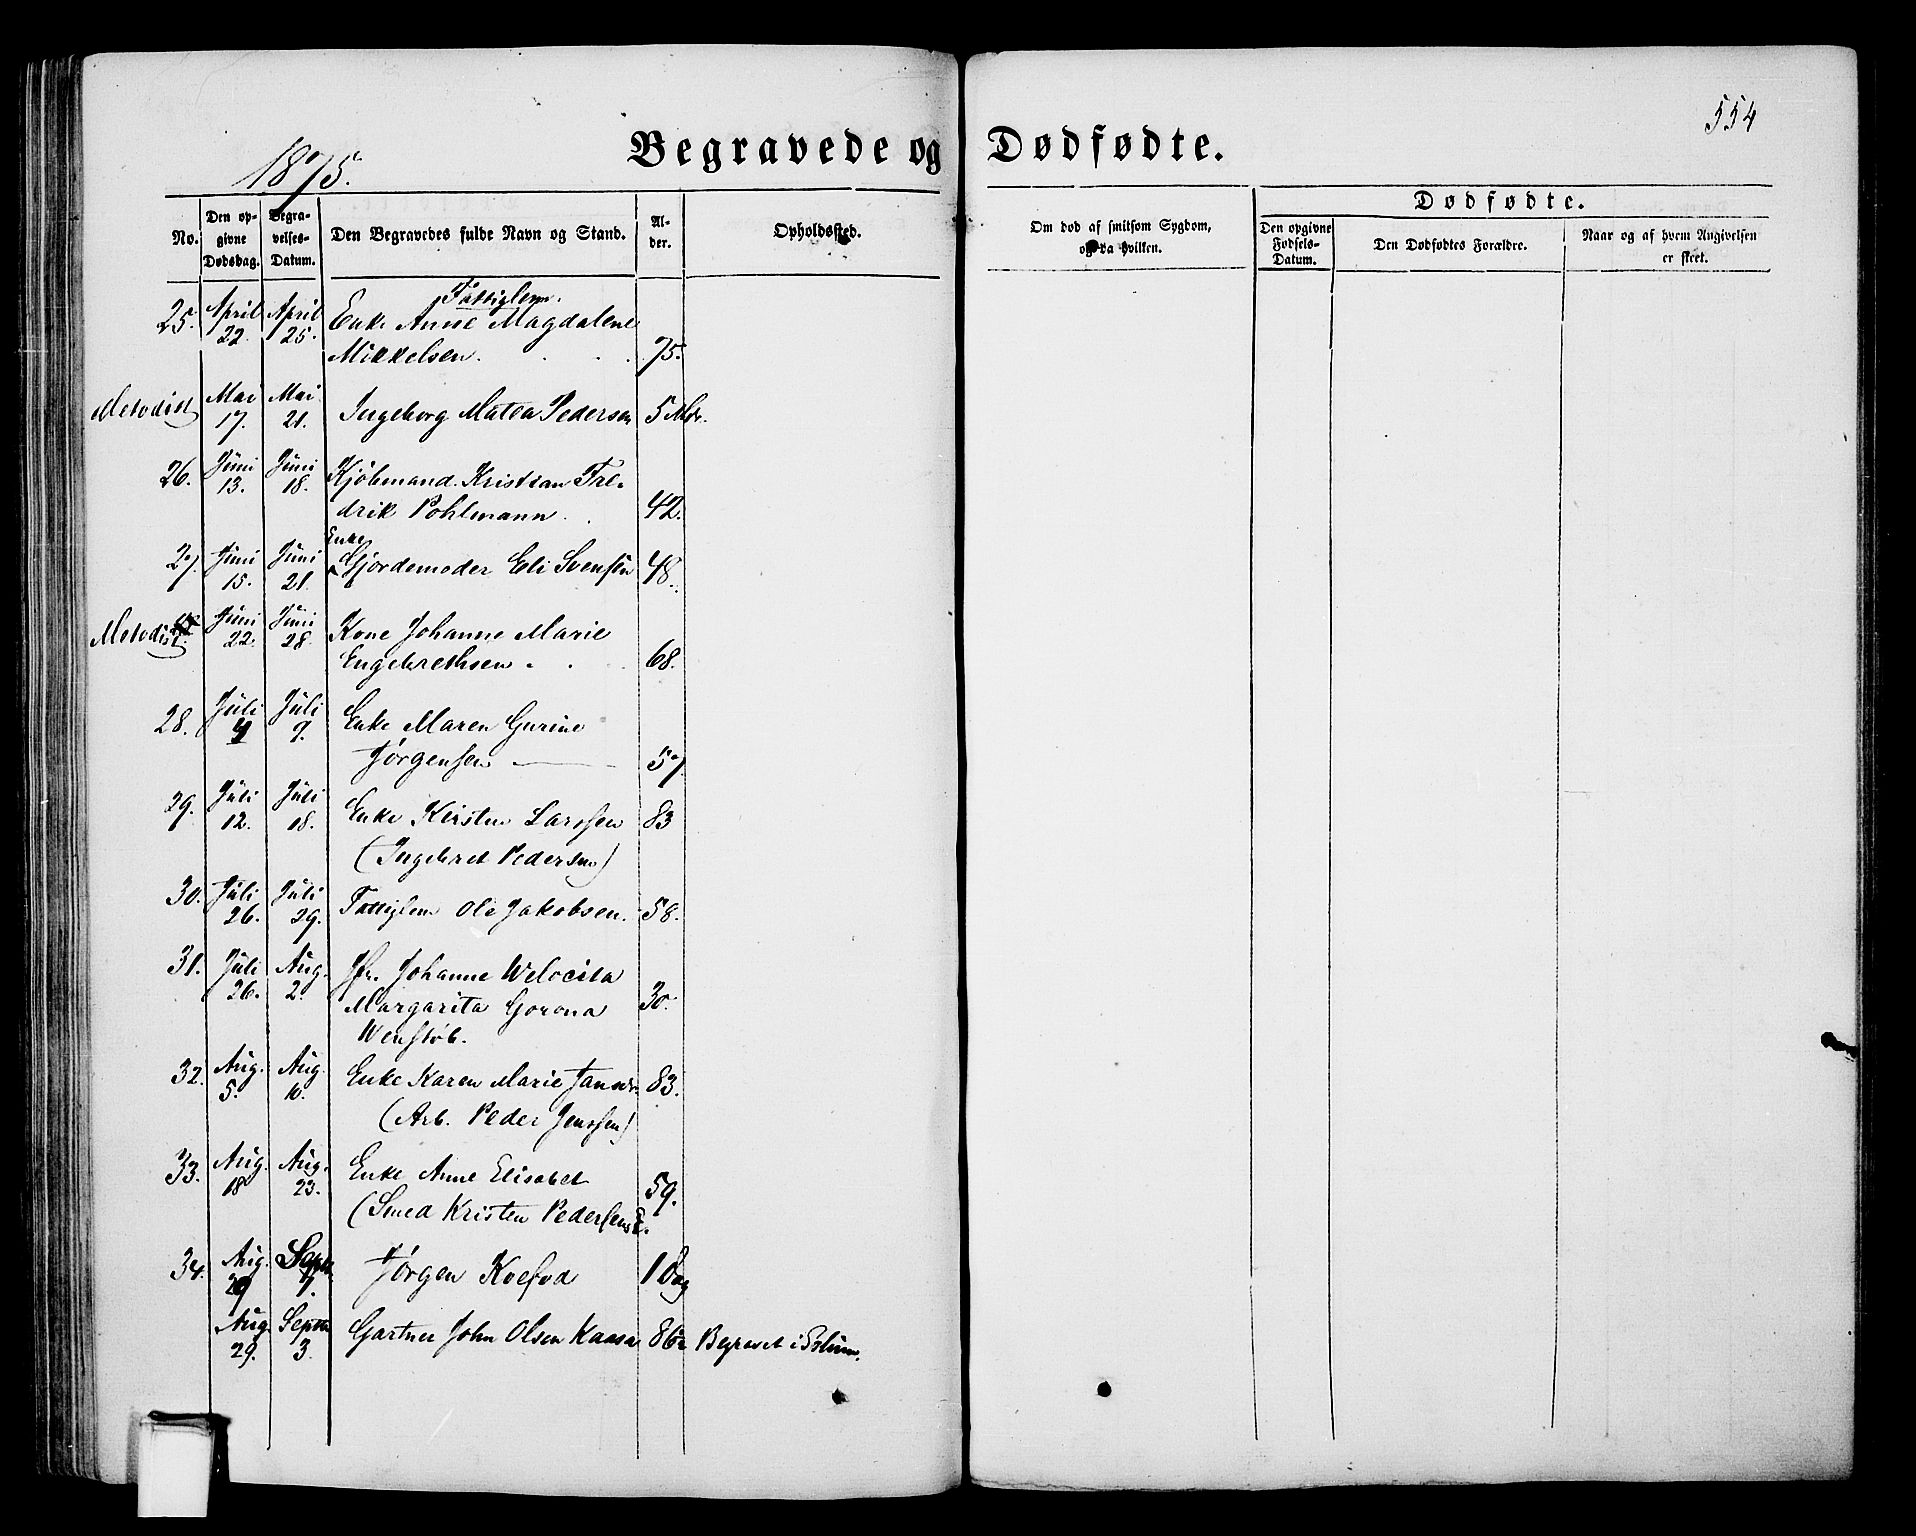 554
1875.
Begravede og Dødfødte.
No.
Den op-
givne
Dødsdag.
Begra-
velses-
Datum.
Den Begravedes fulde Navn og Stand.
Al-
der.
Opholdssted.
Om død af smitsom Sygdom,
og da hvilken.
Dødfødte.
Den opgivne
Fødsels-
Datum.
Den Dødfødtes Forældre.
Naar og af hvem Angivelsen
er skeet.
Fattiglem.
25. April 22. April 25. Enke Anne Magdalene
Mikkelsen. 75.
Metodist Mai 17. Mai 21. Ingeborg Matea Pedersen 5 Mdr.
26. Juni 13. Juni 18. Kjøbmand Kristian Fre-
drik Pohlmann. 42.
Enke
27. Juni 15. Juni 21. Gjordemoder Eli Svensen 48.
Metodist. Juni 22. Juni 28. Kone Johanne Marie
Engebrethsen. 68.
28. Juli 4 Juli 9. Enke Maren Gurine
Jørgensen 57.
29. Juli 12. Juli 18. Enke Kirsten Larssen 83
(Ingebret Pedersen)
30. Juli 26. Juli 29. Fattiglem Ole Jakobsen. 58.
31. Juli 26. Aug. 2. Jfr. Johanne Welocita
Margarita Gorona 30.
Wenstøb.
32. Aug. 5. Aug. 10. Enke Karen Marie 83.
(Arb. Peder Jenssen)
33. Aug. 18 Aug. 23. Enke Anne Elisabet
(Smed Kristen Pedersens E. 59.
34. Aug. Septb. Jørgen Koefod 1 Dag
Aug. 29. Septb. 3. Gartner John Olsen Kaasa 86 Begravet i